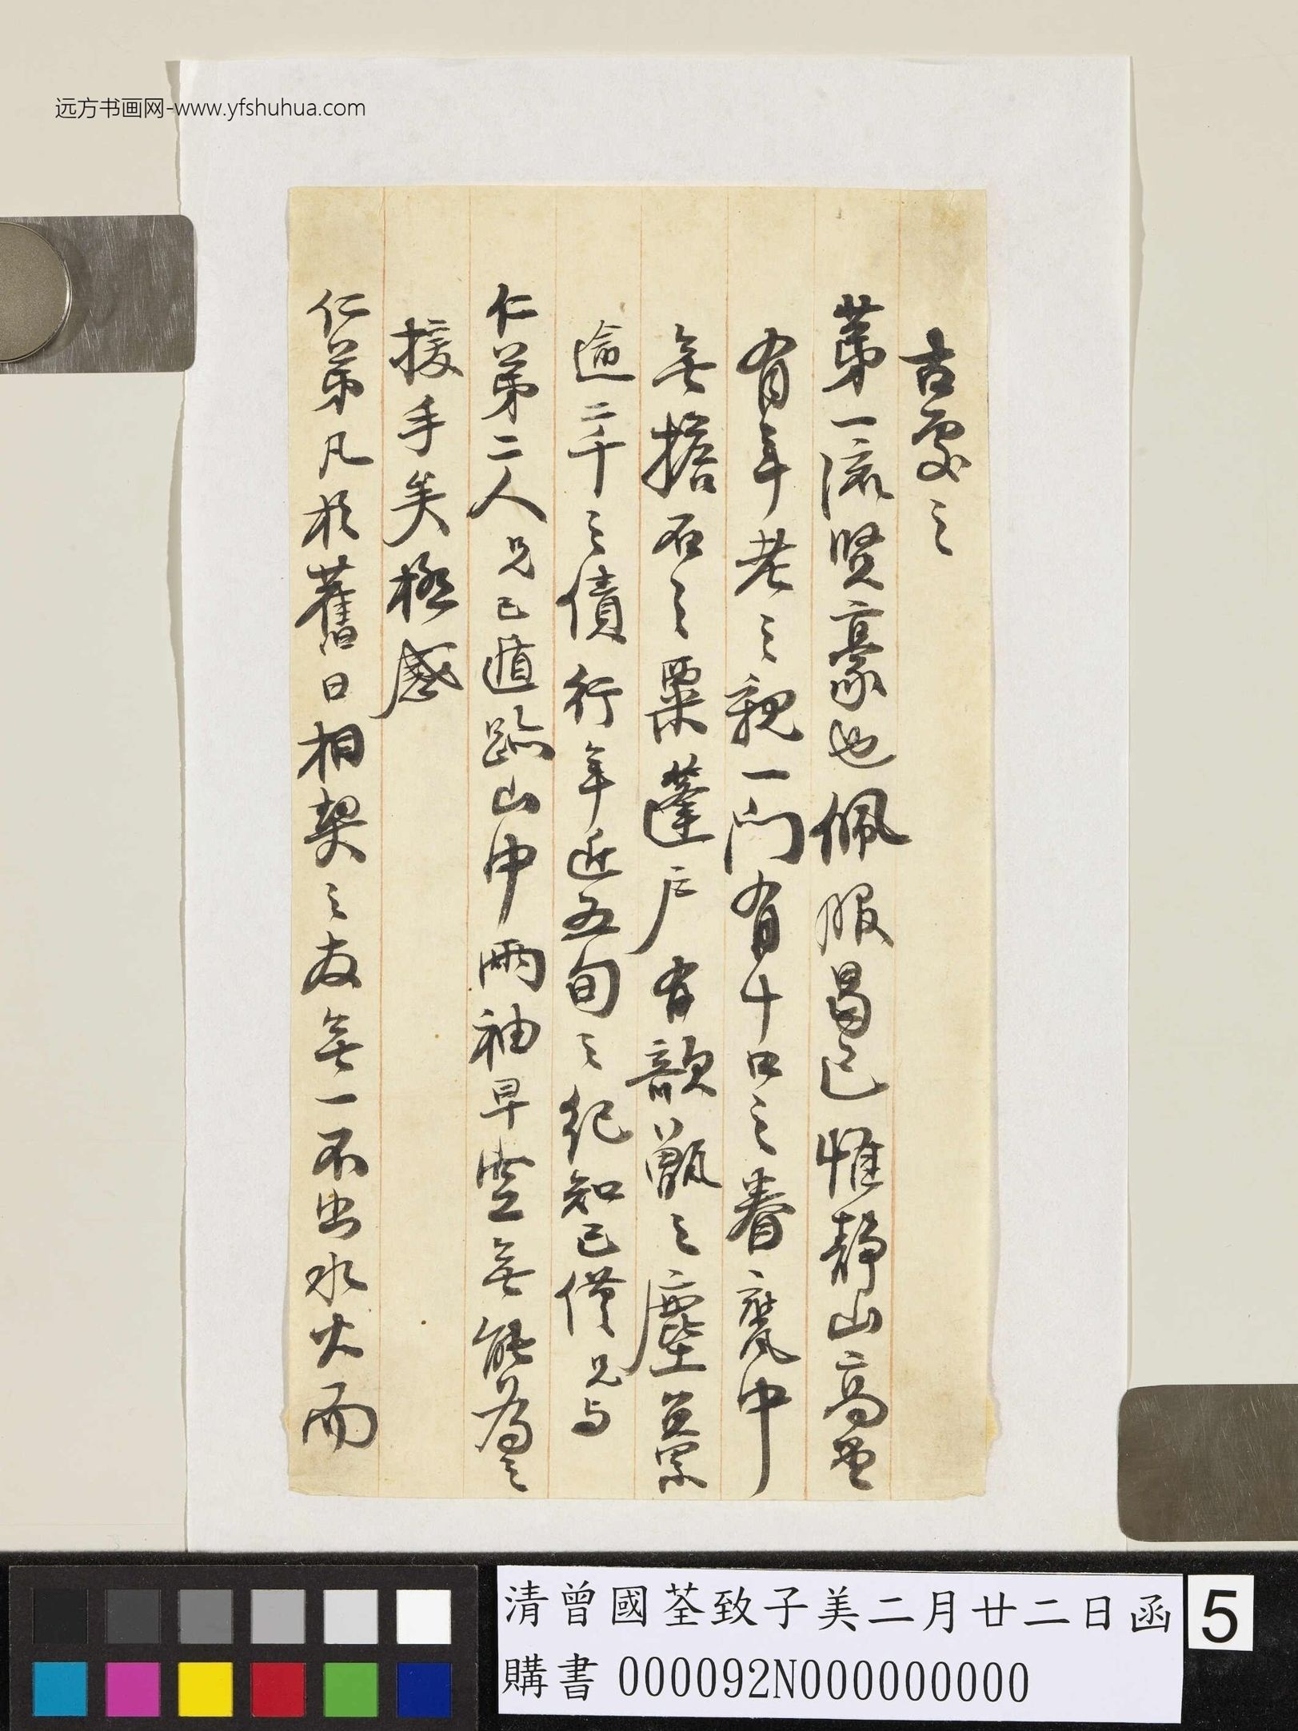 远方书画网-www.yfshuhua.com
古處之
第一流賢豪也佩服曷已惟靜山高堂
有年老之親一門有十口之眷甕中
無擔石之粟蓬戶有歎甑之塵纍
逾二千之債行年近五旬之紀知己僅兄與
仁弟二人兄已遁跡山中兩袖早空無能為之
援手矣極感
仁弟凡於舊日相契之友無一不出水火而
清曾國荃致子美二月廿二日函
購書 000092N000000000
5